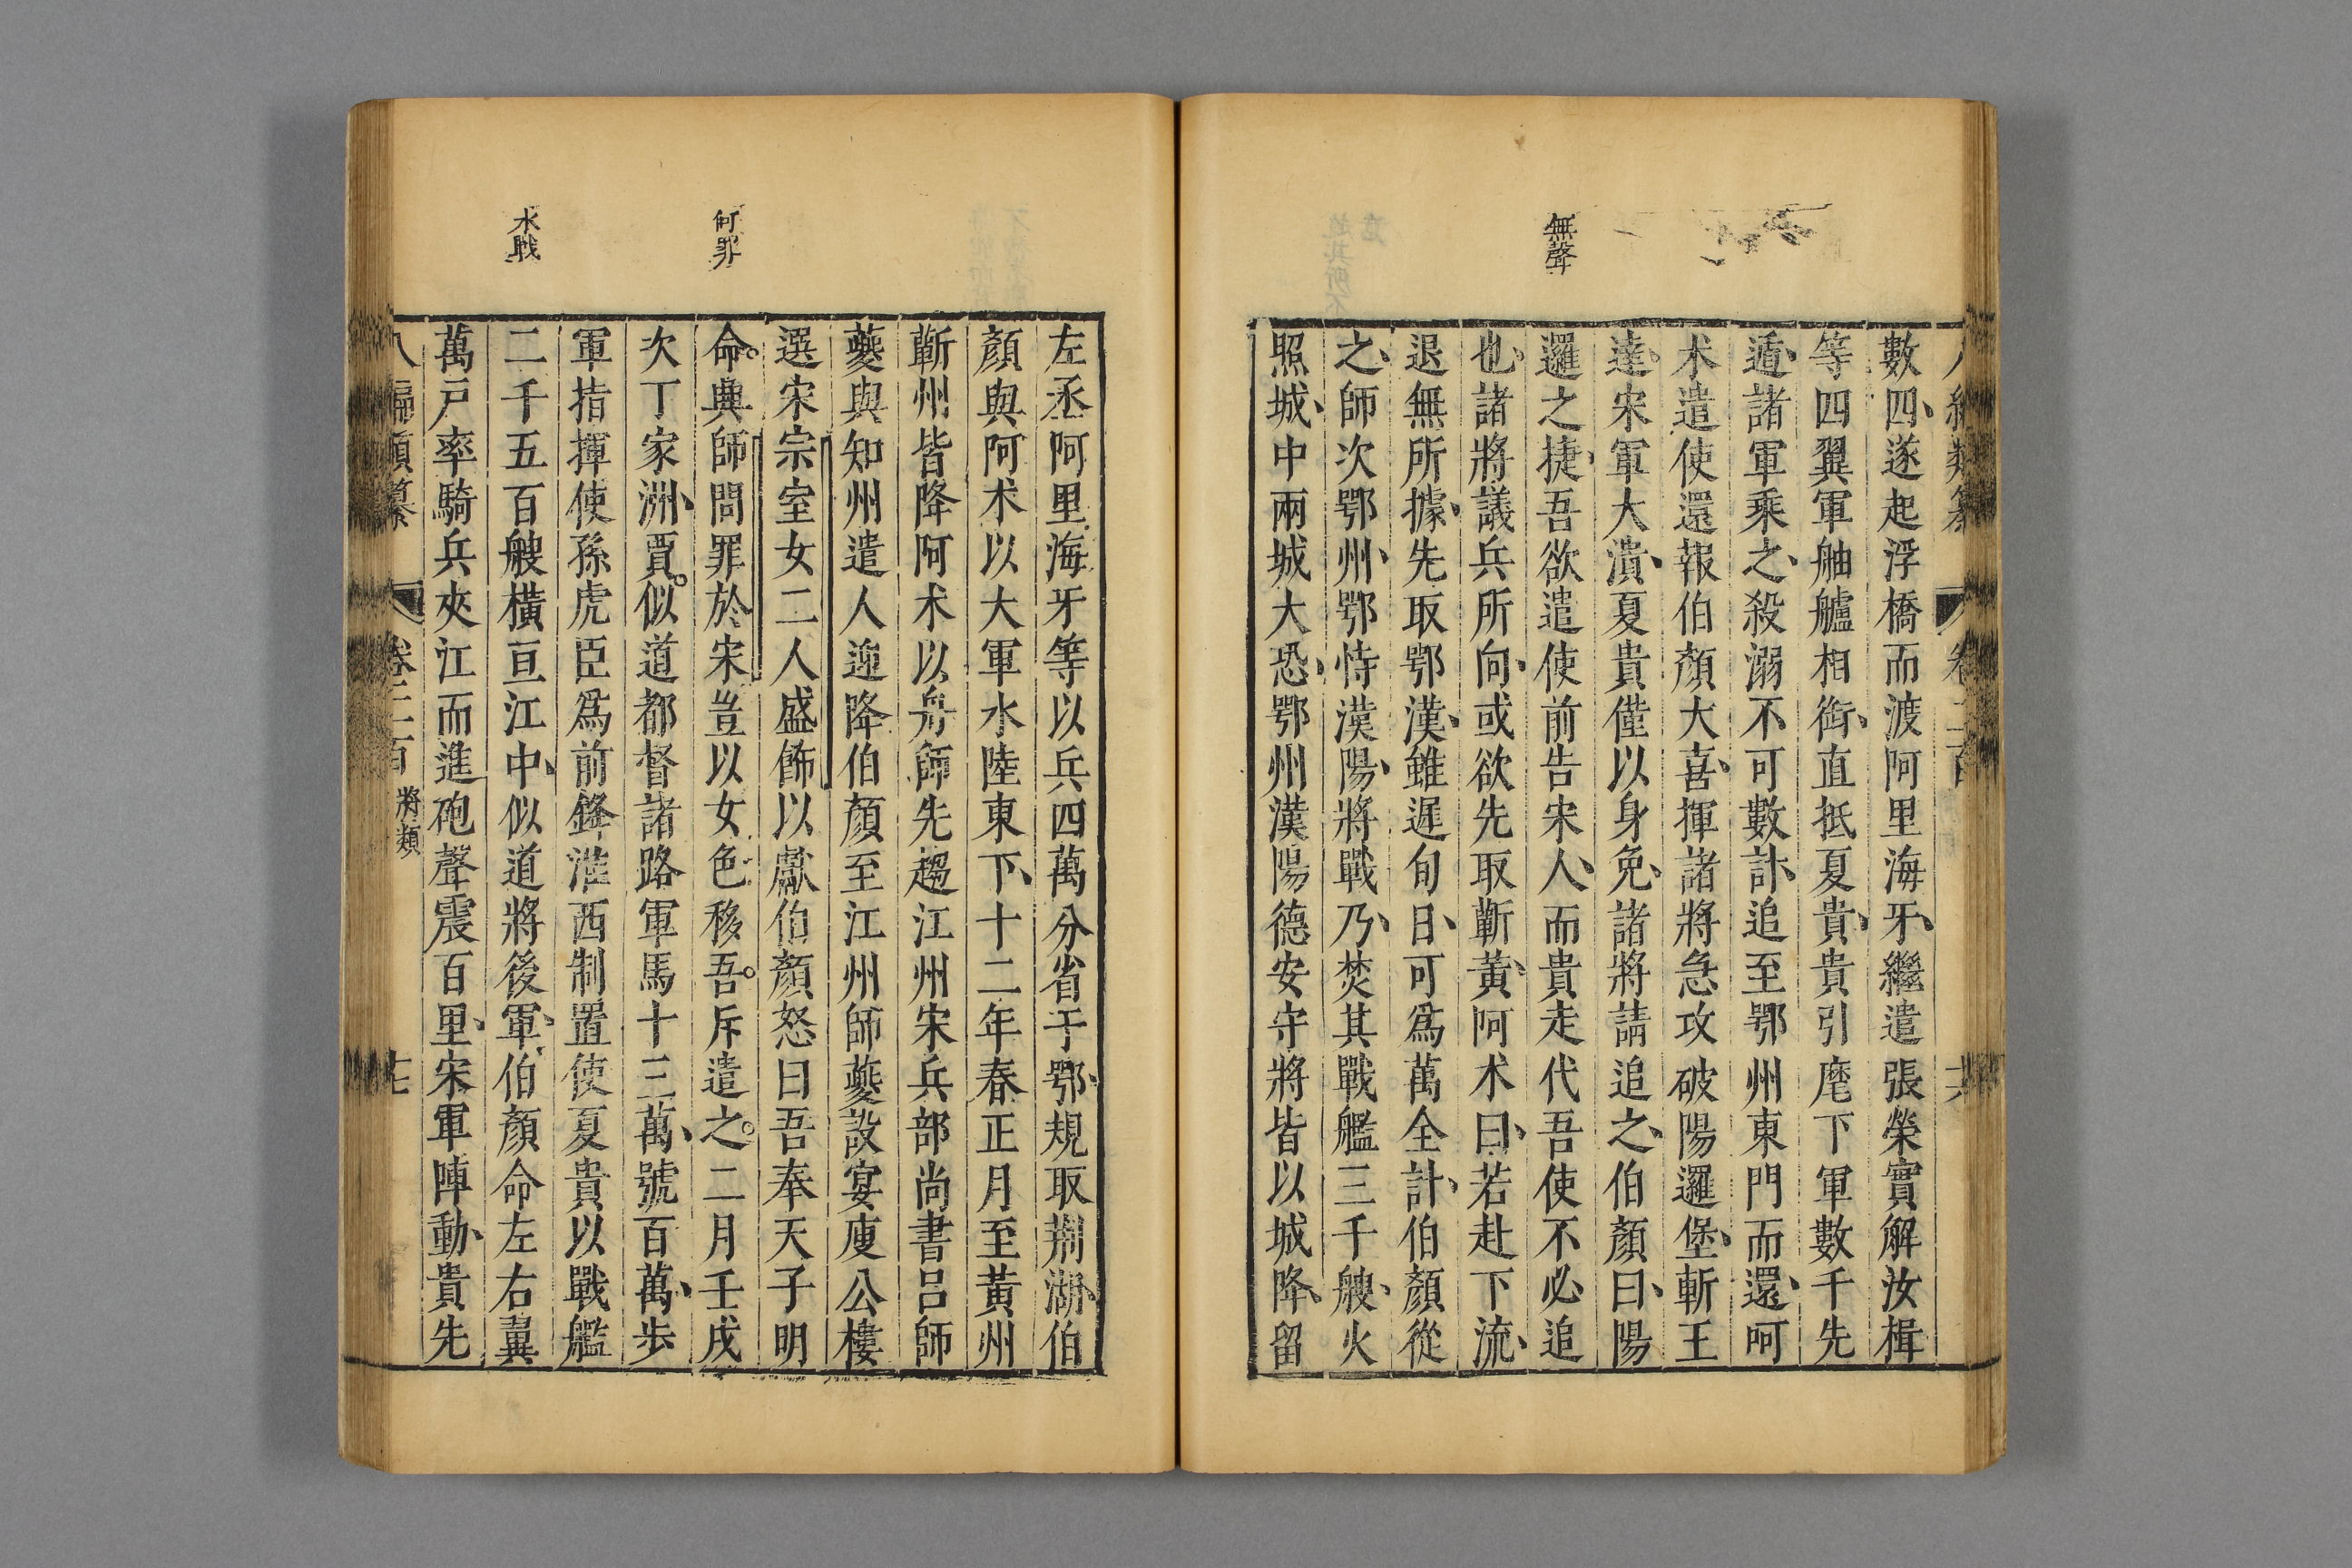 無聲
數四遂起浮橋而渡阿里海牙繼遣張榮實解汝楫
等四翼軍舳艫相銜直抵夏貴貴引麾下軍數千先
遁諸軍乘之殺溺不可數計追至鄂州東門而還阿
术遣使還報伯顏大喜揮諸將急攻破陽邏堡斬王
達宋軍大潰夏貴僅以身免諸將請追之伯顏曰陽
邏之捷吾欲遣使前告宋人而貴走代吾使不必追
也諸將議兵所向或欲先取蘄黃阿术曰若赴下流
退無所據先取鄂漢雖遲旬日可爲萬全計伯顏從
之師次鄂州鄂恃漢陽將戰乃焚其戰艦三千艘火
照城中兩城大恐鄂州漢陽德安守將皆以城降留
何罪
水戰
左丞阿里海牙等以兵四萬分省于鄂規取荆湖伯
顏與阿术以大軍水陸東下十二年春正月至黃州
蘄州皆降阿术以舟師先趨江州宋兵部尚書呂師
夔與知州遣人迎降伯顏至江州師夔設宴庾公樓
選宋宗室女二人盛飾以獻伯顏怒曰吾奉天子明
命典師問罪於宋豈以女色移吾斥遣之二月壬戌
次丁家洲賈似道都督諸路軍馬十三萬號百萬步
軍指揮使孫虎臣爲前鋒淮西制置使夏貴以戰艦
二千五百艘橫亘江中似道將後軍伯顏命左右翼
萬戸率騎兵夾江而進砲聲震百里宋軍陣動貴先
八編類纂 卷二百 將類 十七